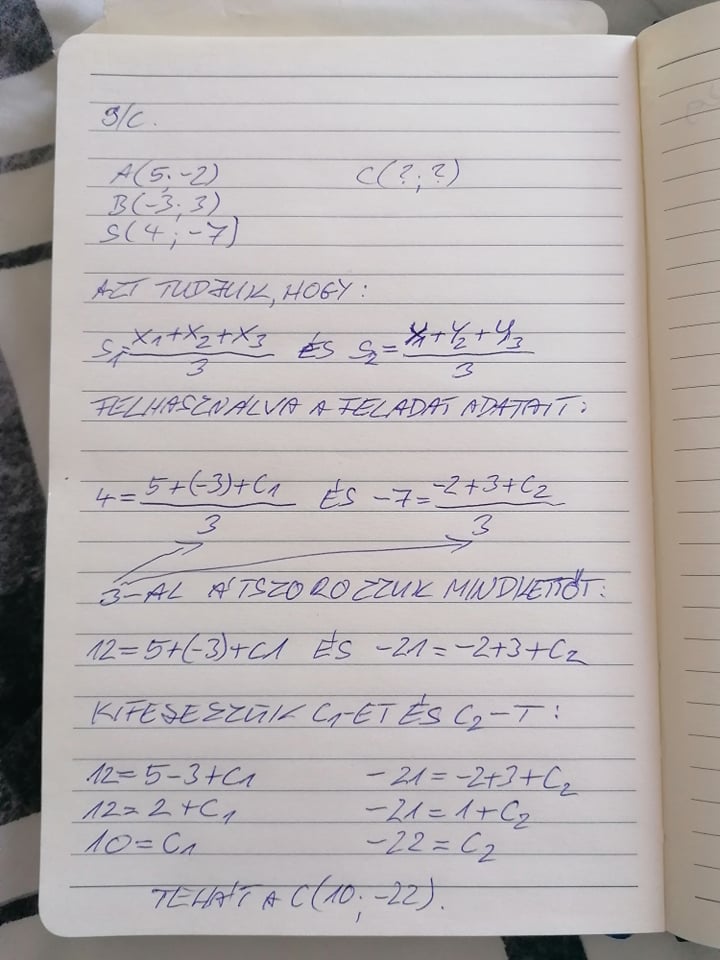 9/C.
A(5;-2) C(?;?)
B(-3;3)
S(4;-7)
AZT TUDJUK, HOGY:
S₁=(X₁+X₂+X₃)/3 ÉS S₂=(Y₁+Y₂+Y₃)/3
FELHASZNÁLVA A FELADAT ADATAIT:
4=(5+(-3)+C₁)/3 ÉS -7=(-2+3+C₂)/3
3-AL ÁTSZOROZZUK MINDKETTŐT:
12=5+(-3)+C₁ ÉS -21=-2+3+C₂
KIFEJEZZÜK C₁-ET ÉS C₂-T:
12=5-3+C₁ -21=-2+3+C₂
12=2+C₁ -21=1+C₂
10=C₁ -22=C₂
TEHÁT A C(10;-22).